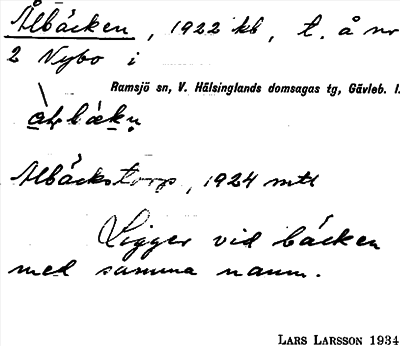 Ålbäcken, 1922 kb, t. å nr
2 Nybo i
Ramsjö sn, V. Hälsinglands domsagas tg, Gävleb. l.
Albäckstorp, 1924 mtl
Ligger vid bäcken
med samma namn.
LARS LARSSON 1934